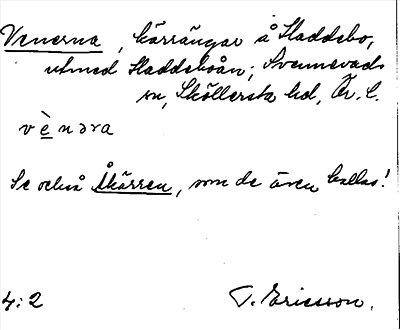 Venerna, kärrängar å Haddebo,
utmed Haddeboån; Svennevads
sn, Sköllersta hd, Ör. l.
vè̱nəra
Se också Åkärren, som de även kallas!
4:2 T. Ericsson.